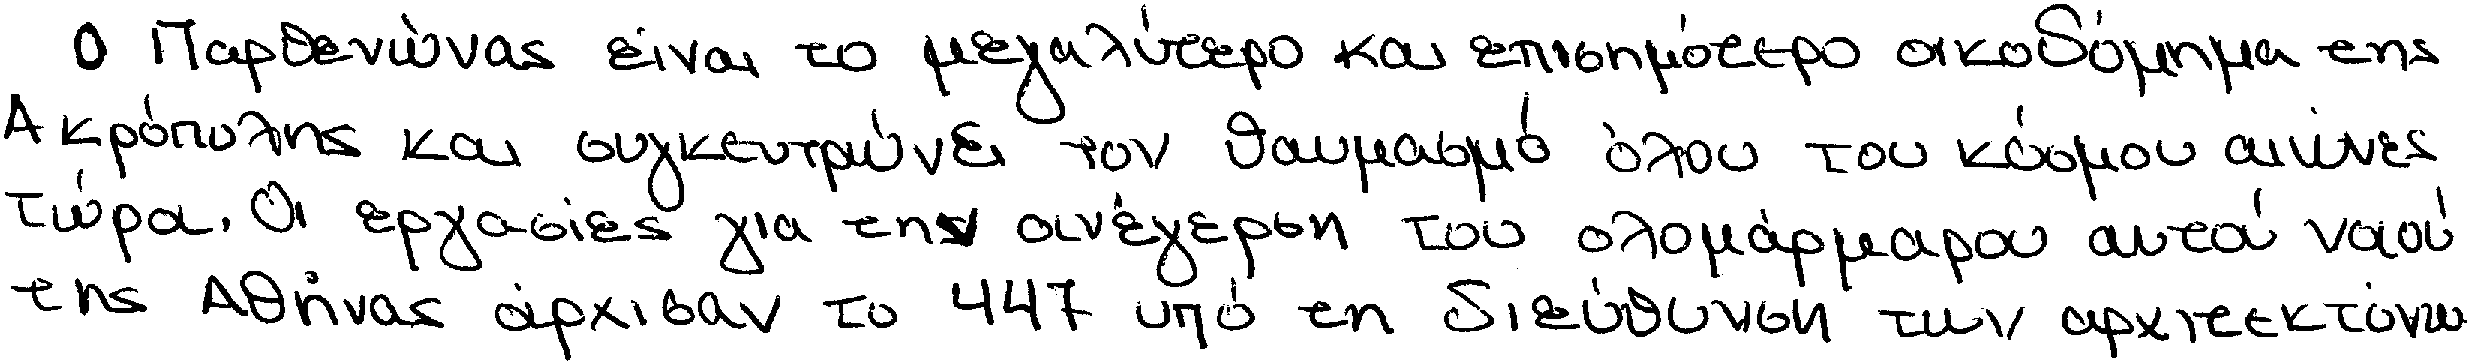 Ο Παρθενώνας είναι το μεγαλύτερο και επισημότερο οικοδόμημα της
Ακρόπολης και συγκεντρώνει τον θαυμασμό όλου του κόσμου αιώνες
τώρα. Οι εργασίες για την ανέγερση του ολομάρμαρου αυτού ναού
της Αθήνας άρχισαν το 447 υπό τη διεύθυνση των αρχιτεκτόνω